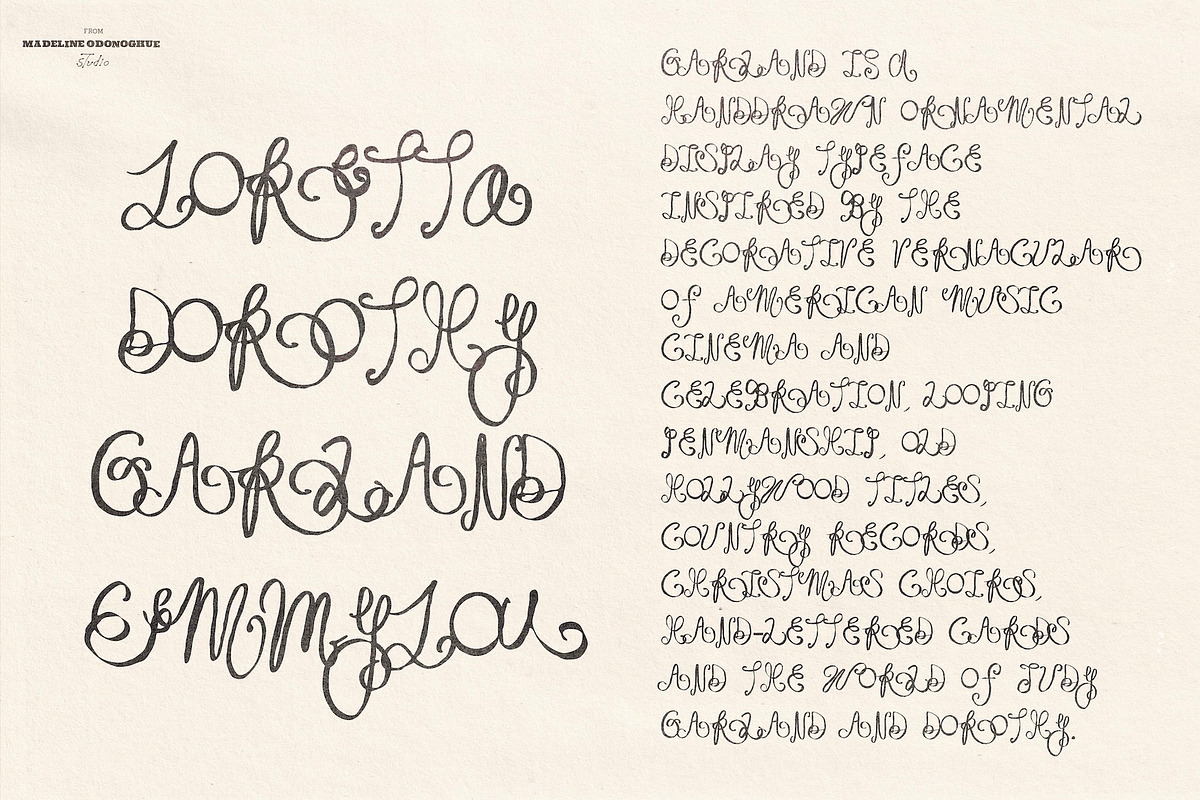 FROM
MADELINE ODONOGHUE
STudio
LORETTa
DOROTHy
GARLAND
EMMyLOU
GARLAND IS a
HANDDRAWN ORNAMENTAL
DISPLAy TyPEfACE
INSPIRED By THE
DECORATIVE VERNACULAR
Of AMERICAN MUSIC
CINEMA AND
CELEBRATION, LOOPING
PENMANSHIP, OLD
HOLLyWOOD TITLES,
COUNTRy RECORDS,
CHRISTMAS CHOIRS,
HAND-LETTERED CARDS
AND THE WORLD Of JUDy
GARLAND AND DOROTHy.